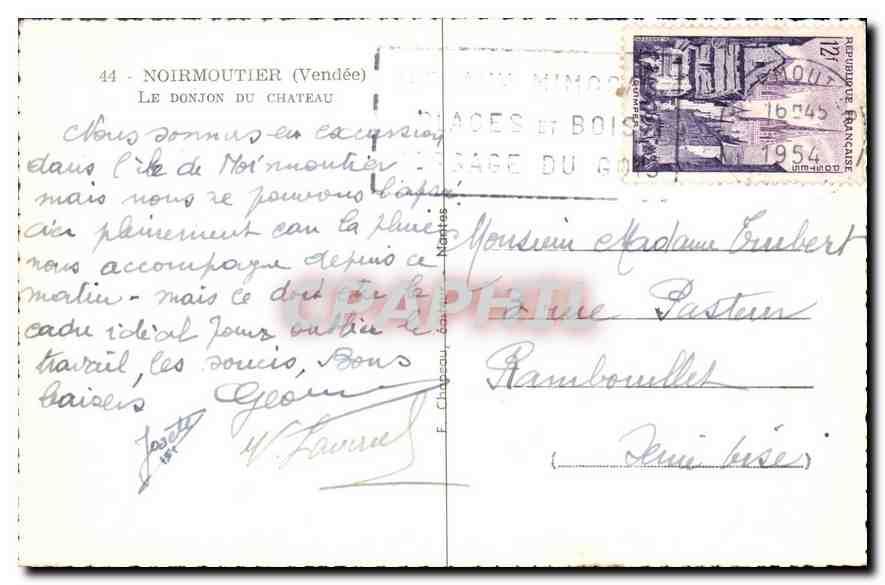 44 - NOIRMOUTIER (Vendée)
LE DONJON DU CHATEAU
Nous sommes en excursion
dans l'île de Noirmoutier
mais nous ne pouvons l'appré
cier pleinement car la pluie
nous accompagne depuis ce
matin - mais ce doit être le
cadre idéal pour oublier le
travail, les soucis, Bons
baisers
Josette
F. Chapeau, Nantes
MIMO
PLAGES ET BOIS
PASSAGE DU GOIS
16H45
1954
REPUBLIQUE FRANÇAISE
12F
QUIMPER
POSTES
Monsieur Madame Imbert
2 rue Pasteur
Rambouillet
(Seine Oise)
CPAPHIL